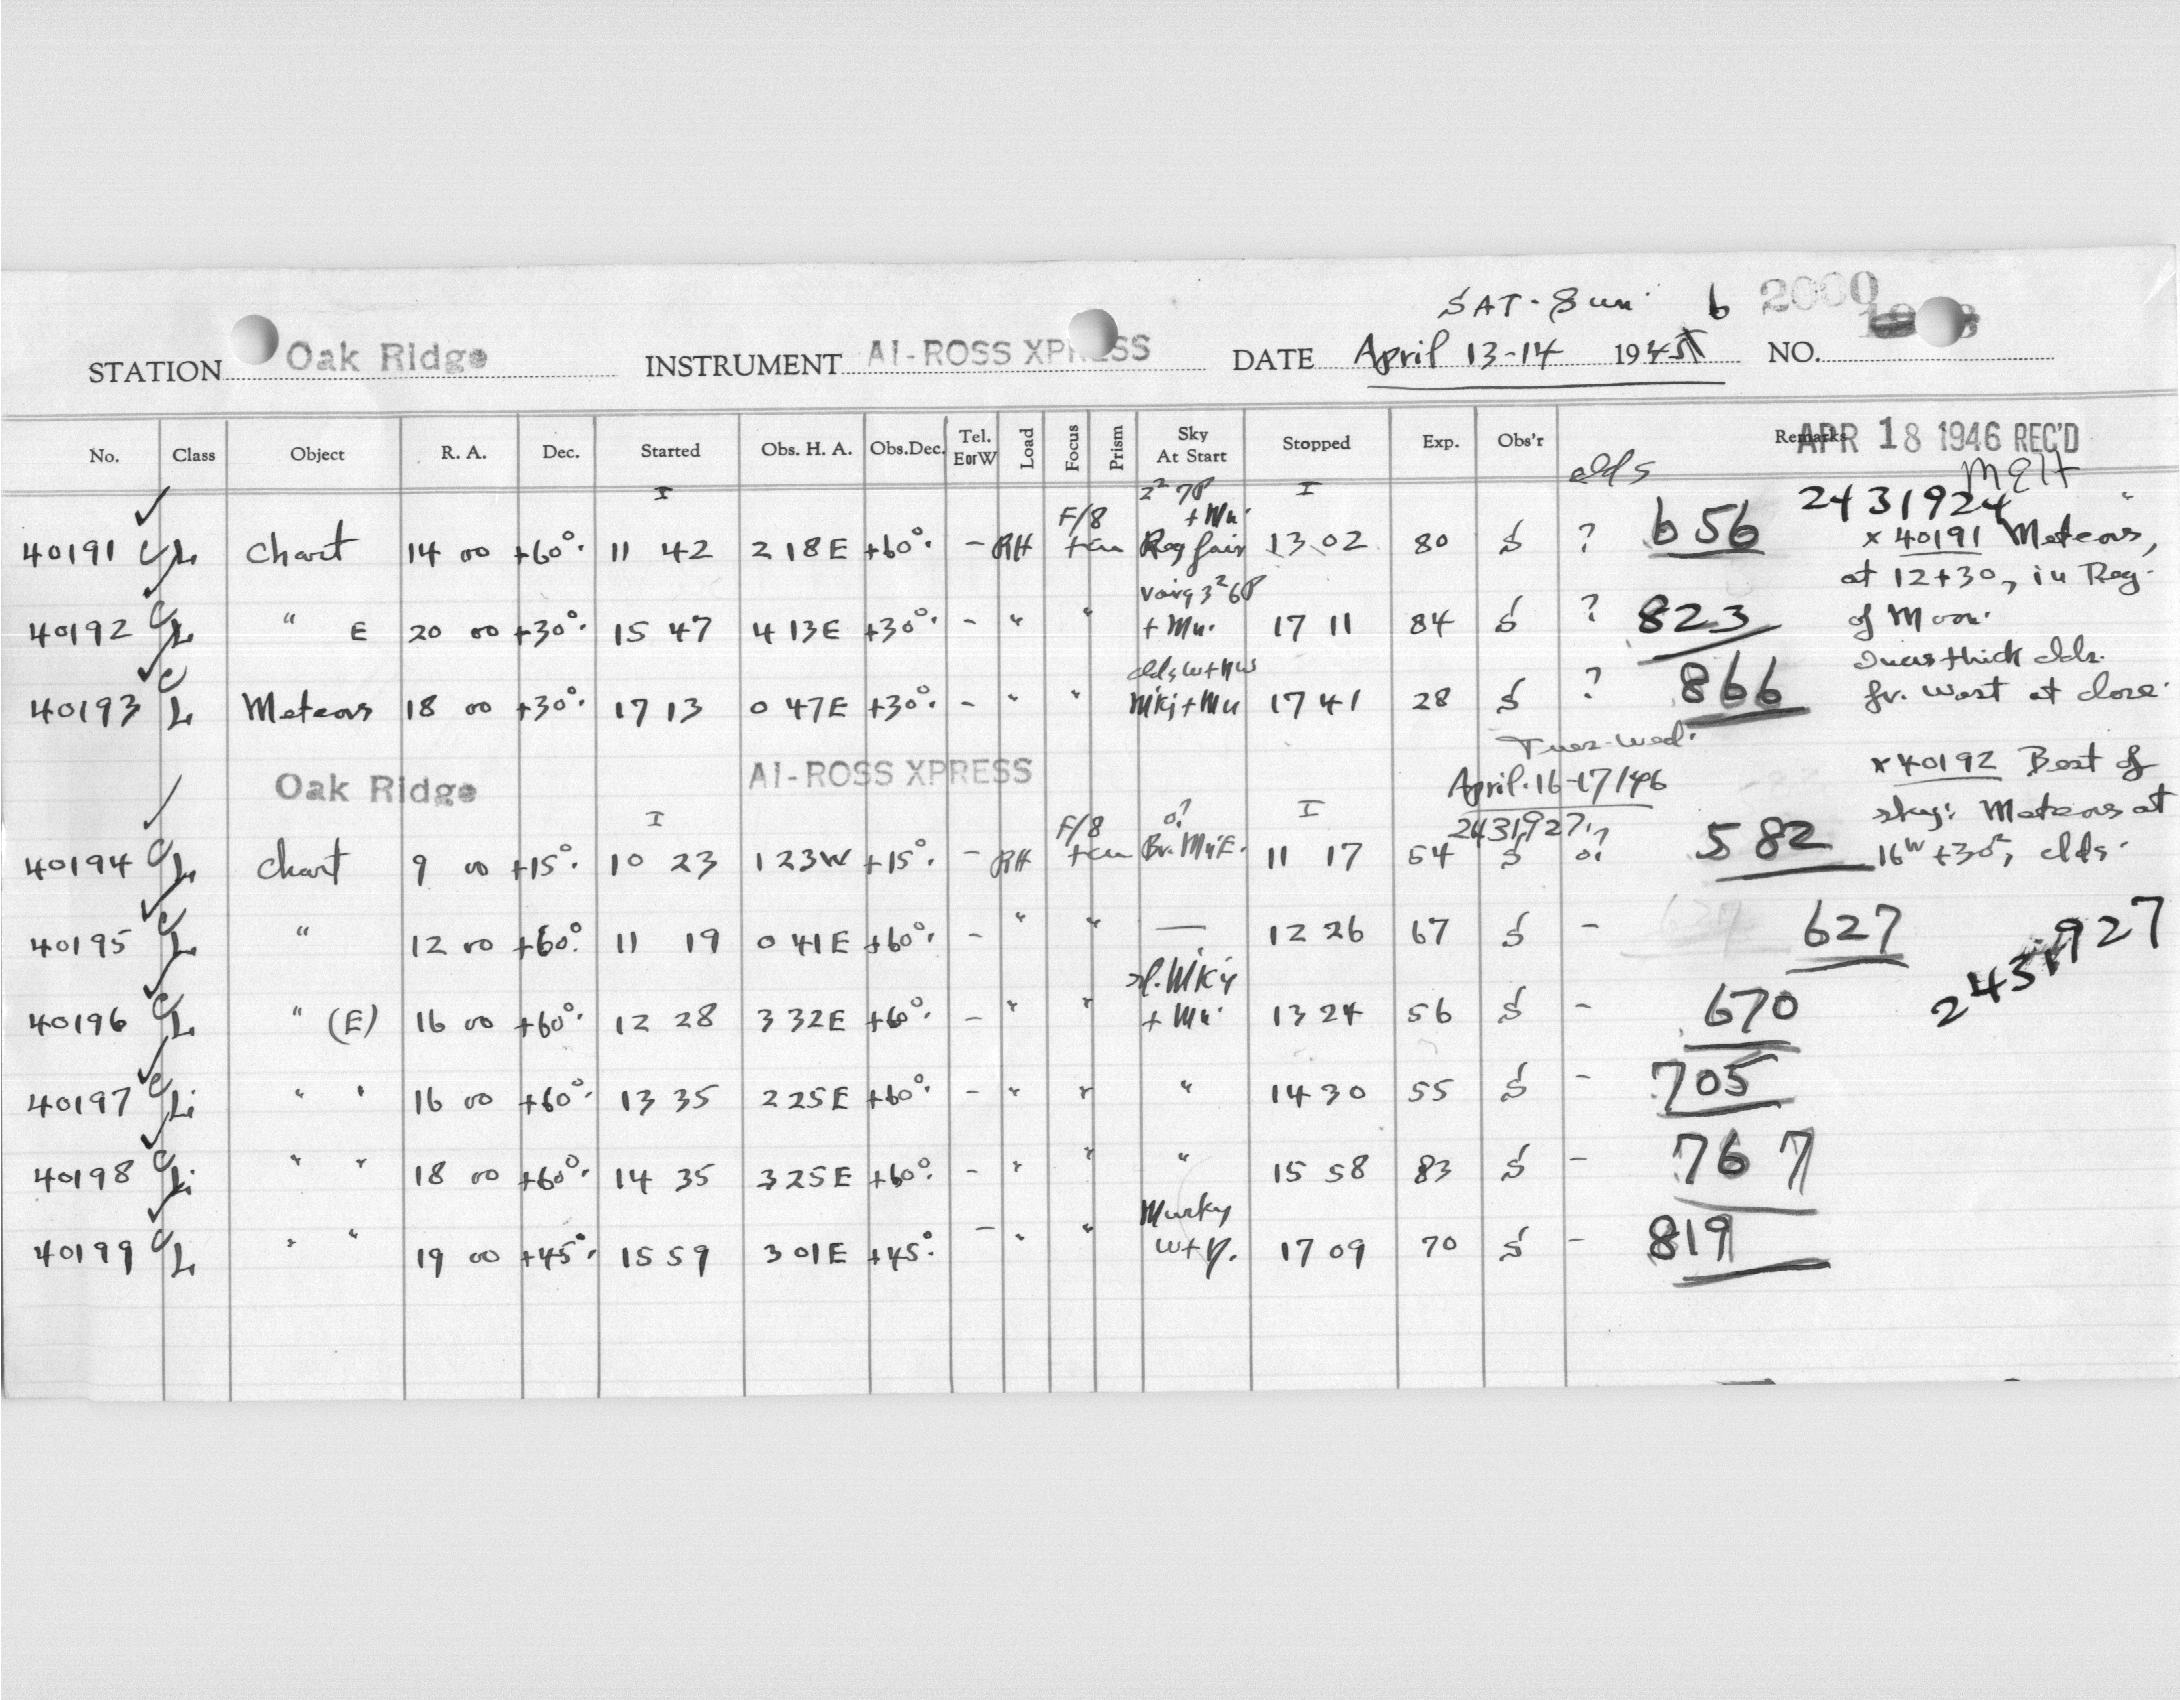 SAT - Sun. 6 2000
STATION Oak Ridge INSTRUMENT AI-ROSS XPRESS DATE April 13-14 194 NO.
No. Class Object R. A. Dec. Started Obs. H. A. Obs.Dec. Tel. EorW Load Focus Prism Sky At Start Stopped Exp. Obs'r Remarks APR 18 1946 REC'D
clds
I I 2431924
40191 L Chart 14 00 +60° 11 42 2 18E +60° - RH F/8 + Mu. Reg fair 13 02 80 S ? 656 x 40191 Meteors,
at 12+30, in Reg.
40192 L " E 20 00 +30° 15 47 4 13E +30° - " " + Mu. 17 11 84 S ? 823 of Moon.
thick clds.
40193 L Meteors 18 00 +30° 17 13 0 47E +30° - " " clds W + NW Mky + Mu 17 41 28 S ? 866 fr. West at close.
Tues-Wed.
Oak Ridge AI-ROSS XPRESS April 16-17/46 x 40192 Best of
I I 2431927 sky: Meteors at
40194 L Chart 9 00 +15° 10 23 1 23W +15° - RH F/8 Br. Mn E. 11 17 54 S 0? 582 clds.
40195 L " 12 00 +60° 11 19 0 41E +60° - " " — 12 26 67 S - 627
2431927
40196 L " (E) 16 00 +60° 12 28 3 32E +60° - " " sl. Mky + Mu. 13 24 56 S - 670
40197 Li " " 16 00 +60° 13 35 2 25E +60° - " " " 14 30 55 S - 705
40198 Li " " 18 00 +60° 14 35 3 25E +60° - " " " 15 58 83 S - 767
40199 L " " 19 00 +45° 15 59 3 01E +45° - " " Murky 17 09 70 S - 819